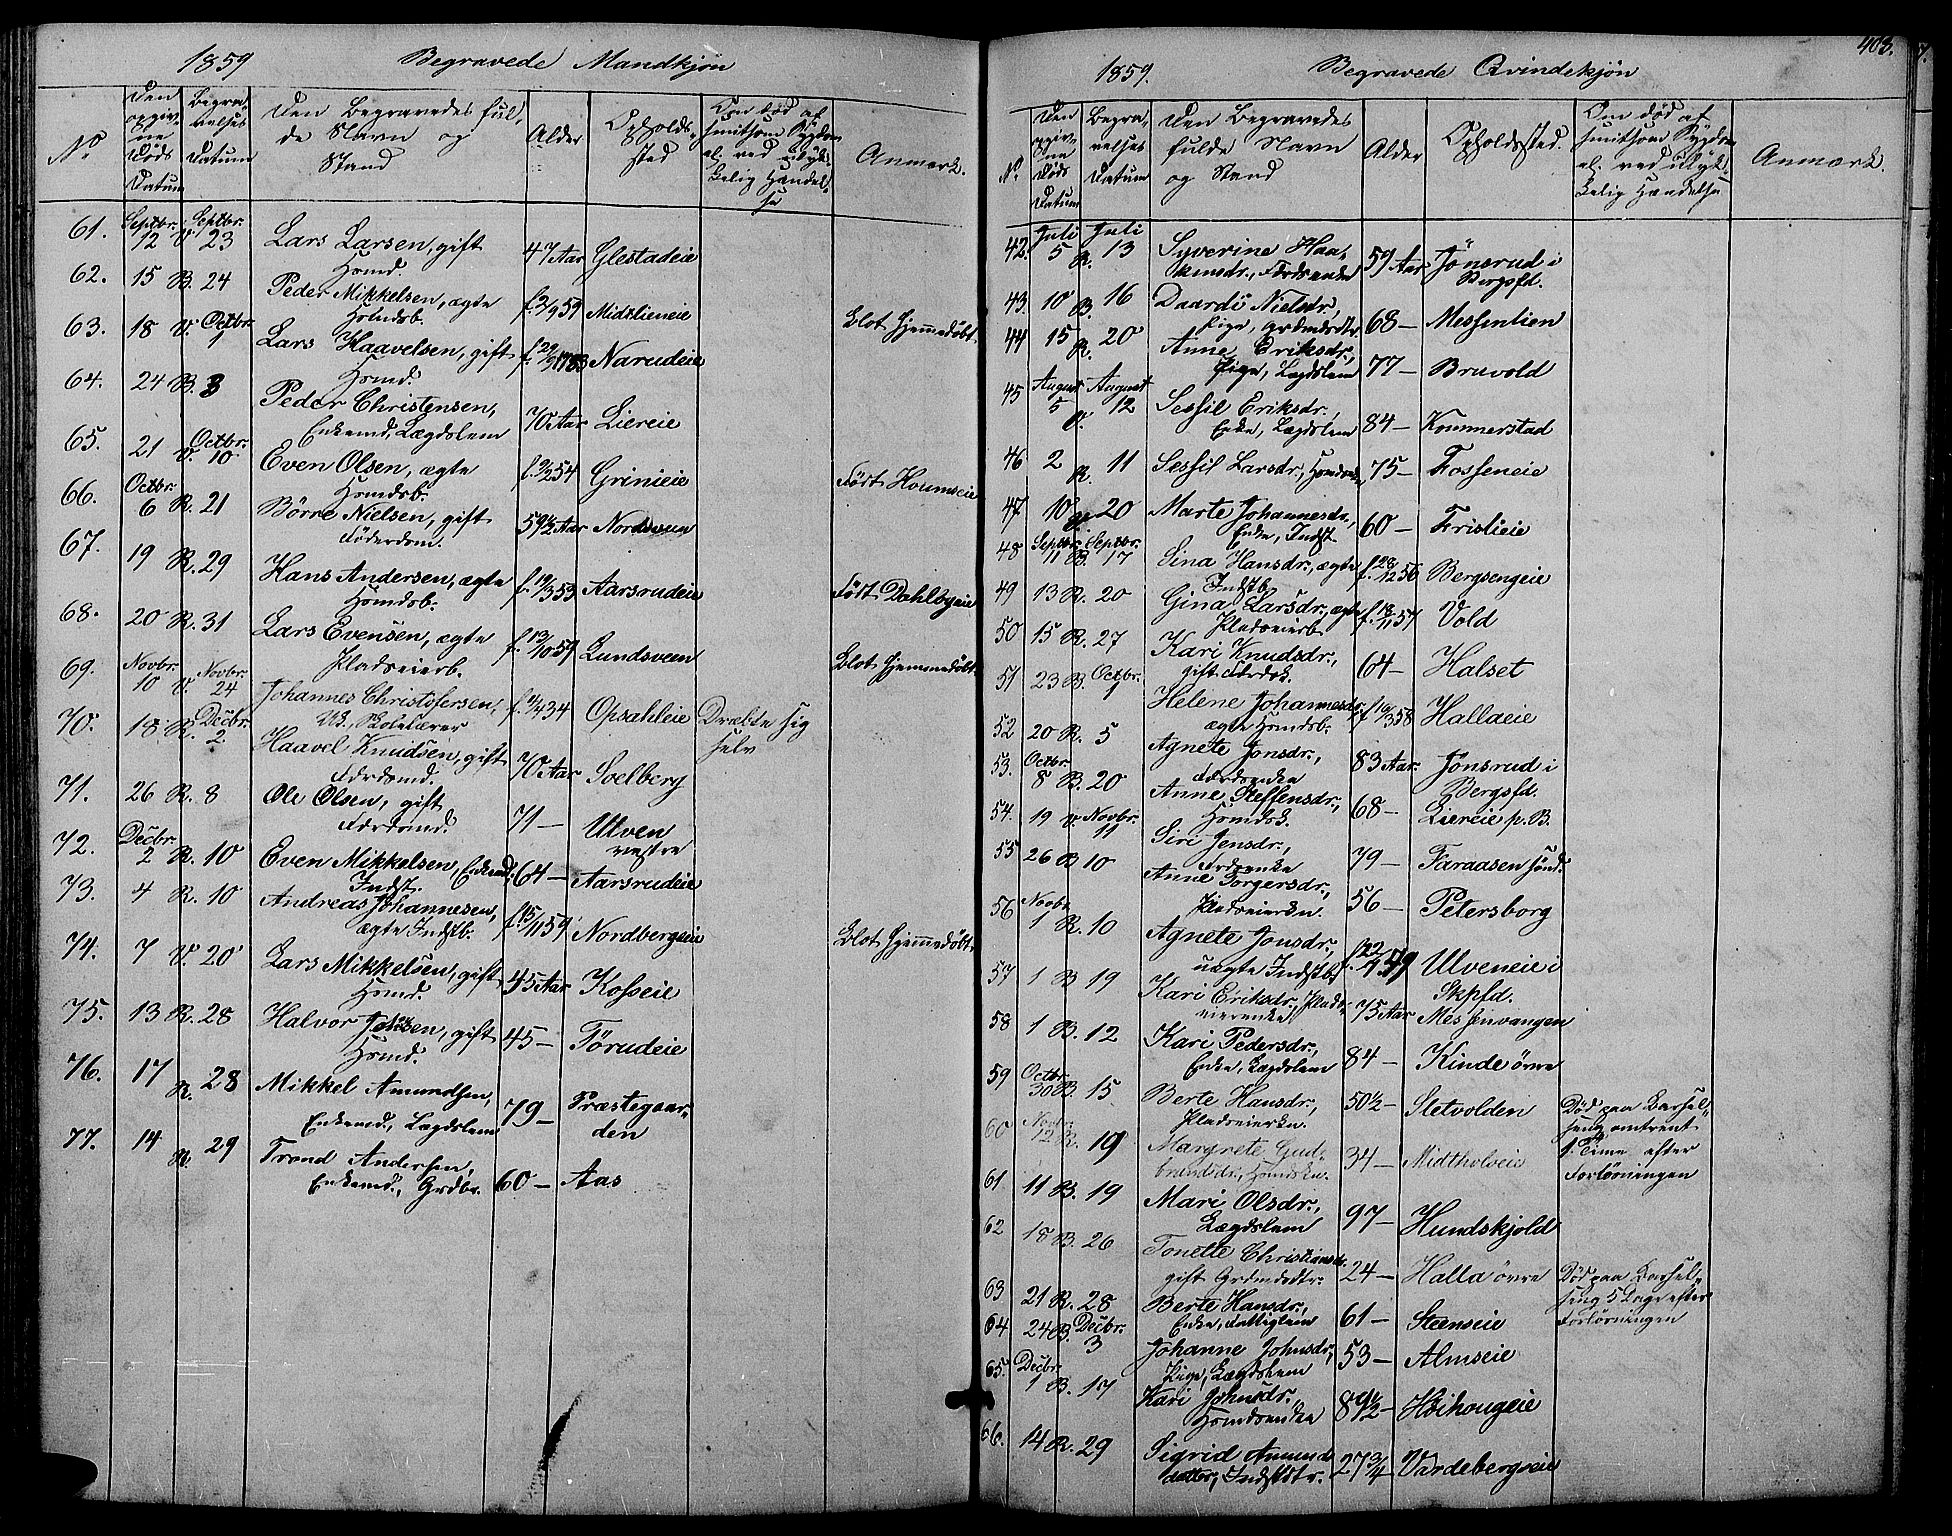 1859 Begravede Mandkjøn
No
Den opgivne Døds Datum
Begravelses Datum
Den Begravedes fulde Navn og Stand
Alder
Opholdssted
Om død af smitsom Sygdom el. ved ulykkelig Hændelse
Anmærk.
61. Septbr. 12 V. Septbr. 23 Lars Larsen, gift Hsmd. 47 Aar Glestadeie
62. 15 B. 24 Peder Mikkelsen, ægte Hsmdsb. f. 2/9 59 Midtlieneie Blot hjemmedøbt.
63. 18 V. Octbr. 1 Lars Haavelsen, gift Hsmd. f. 29/9 1783 Narudeie
64. 24 B. 3 Peder Christensen, Enkemd, Lægdslem 70 Aar Liereie
65. 21 V. Octbr. 10 Even Olsen, ægte Hsmdsb. f. 3/2 54 Grinieie Født Houmseie
66. Octbr. 6 R. 21 Börre Nielsen, gift Föderdom. 59½ Aar Nordsveen
67. 19 R. 29 Hans Andersen, ægte Hsmdsb. f. 19/3 53 Aarsrudeie Født Dahlbyeie
68. 20 R. 31 Lars Evensen, ægte Pladseierb. f. 13/10 59 Lundsveen Blot hjemmedøbt
69. Novbr. 10 V. Novbr. 24 Johannes Christofersen, Uk. Skolelærer f. 11/4 34 Opsahleie Dræbte sig selv
70. 18 R. Decbr. 2 Haavel Knudsen, gift Førdsmd. 70 Aar Soelberg
71. 26 R. 8 Ole Olsen, gift Førdsmd. 71 — Ulven vestre
72. Decbr. 2 R. 10 Even Mikkelsen, Enkemd, Indst. 64 — Aarsrudeie
73. 4 R. 10 Andreas Johannesen, ægte Indstb. f. 15/11 59 Nordbergeie Blot hjemmedøbt.
74. 7 V. 20 Lars Mikkelsen, gift Hsmd. 45 Aar Kosseie
75. 13 R. 28 Halvor Johnsen, gift Hsmd. 45 — Törudeie
76. 17 R. 28 Mikkel Amundsen, Enkemd, Lægdslem 79 — Præstegaarden
77. 14 R. 29 Trond Andersen, Enkemd., Grdbr. 60 — Aas
1859. Begravede Qvindekjön 408.
No
Den opgivne Døds Datum
Begravelses Datum
Den Begravedes fulde Navn og Stand
Alder
Opholdssted.
Om død af smitsom Sygdom el. ved ulykkelig Hændelse
Anmærk.
42. Juli 5 R. Juli 13 Syverine Haakensdr., Førdsenke 59 Aar Jönsrud i Bergsfd.
43. 10 B. 16 Daardi Nielsdr., Pige, Grdmdsdtr. 68 — Messenlien
44 15 R. 20 Anne Eriksdr., Pige, Lægdslem 77 — Bruvold
45 August 5 V. August 12 Sessil Eriksdr., Enke, Lægdslem 84 — Kommerstad
46 2 R. 11 Sessil Larsdr, 75 — Fosseneie
47 10 V. 20 Marte Johannesdr., Enke, Indst. 60 — Frislieie
48 Septbr. 11 B. Septbr. 17 Lina Hansdr., ægte Indstb. f. 28/12 56 Bergsengeie
49 13 R. 20 Gina Larsdr., ægte Pladseierb. f. 18/11 57 Vold
50 15 R. 27 Kari Knudsdr., gift Førdsk. 64 — Halset
51 23 B. Octbr. 1 Helene Johannesdr., ægte Hsmdsb. f. 19/3 58 Hallaeie
52 20 R. 5 Agnete Jonsdr., Førdsenke 83 Aar Jönsrud i Bergsfd.
53. Octbr. 8 B. 20 Anne Steffensdr., Hsmdsk. 68 — Liereie p. B.
54. 19 V. Novbr. 11 Siri Jensdr., Førdsenke 79 — Faraasen sönd.
55 26 B 10 Anne Torgersdr., Pladseierkn. 56 — Petersborg
56 Novbr 1 R. 10 Agnete Jonsdr., uægte Indstb. f. 22/7 49 Ulveneie i Skpfd.
57 1 B 19 Kari Eriksdr., Pladseierenke 75 Aar Messenvangen
58 1 B. 12 Kari Pedersdr., Enke, Lægdslem 84 — Kinde övre
59 Octbr. 30 B. 15 Berte Hansdr., Pladseierkn. 50½ — Stetvolden Död paa Barselseng omtrent 1 Time efter Forlösningen
60 Novbr. 12 R. 19 Margrete Gudbrandsdr., Hsmdskn. 34 — Midtholseie
61 11 B. 19 Mari Olsdr., Lægdslem 97 — Hundskjold
62 18 B. 26 Tonette Christiansdr. gift Grdmdsdtr. 24 — Halla övre Död paa Barselseng 5 Dage efter Forlösningen
63 21 R. 28 Berte Hansdr., Enke, Fattiglem 61 — Steenseie
64 24 B. Decbr. 3 Johanne Johnsdr., Pige, Lægdslem 53 — Almseie
65. Decbr. 1 B. 17 Kari Johnsdr., Hsmdsenke 89½ — Höihougeie
66. 14 R. 29 Sigrid Amundsdatter, Indstdtr. 27¾ — Vardebergseie